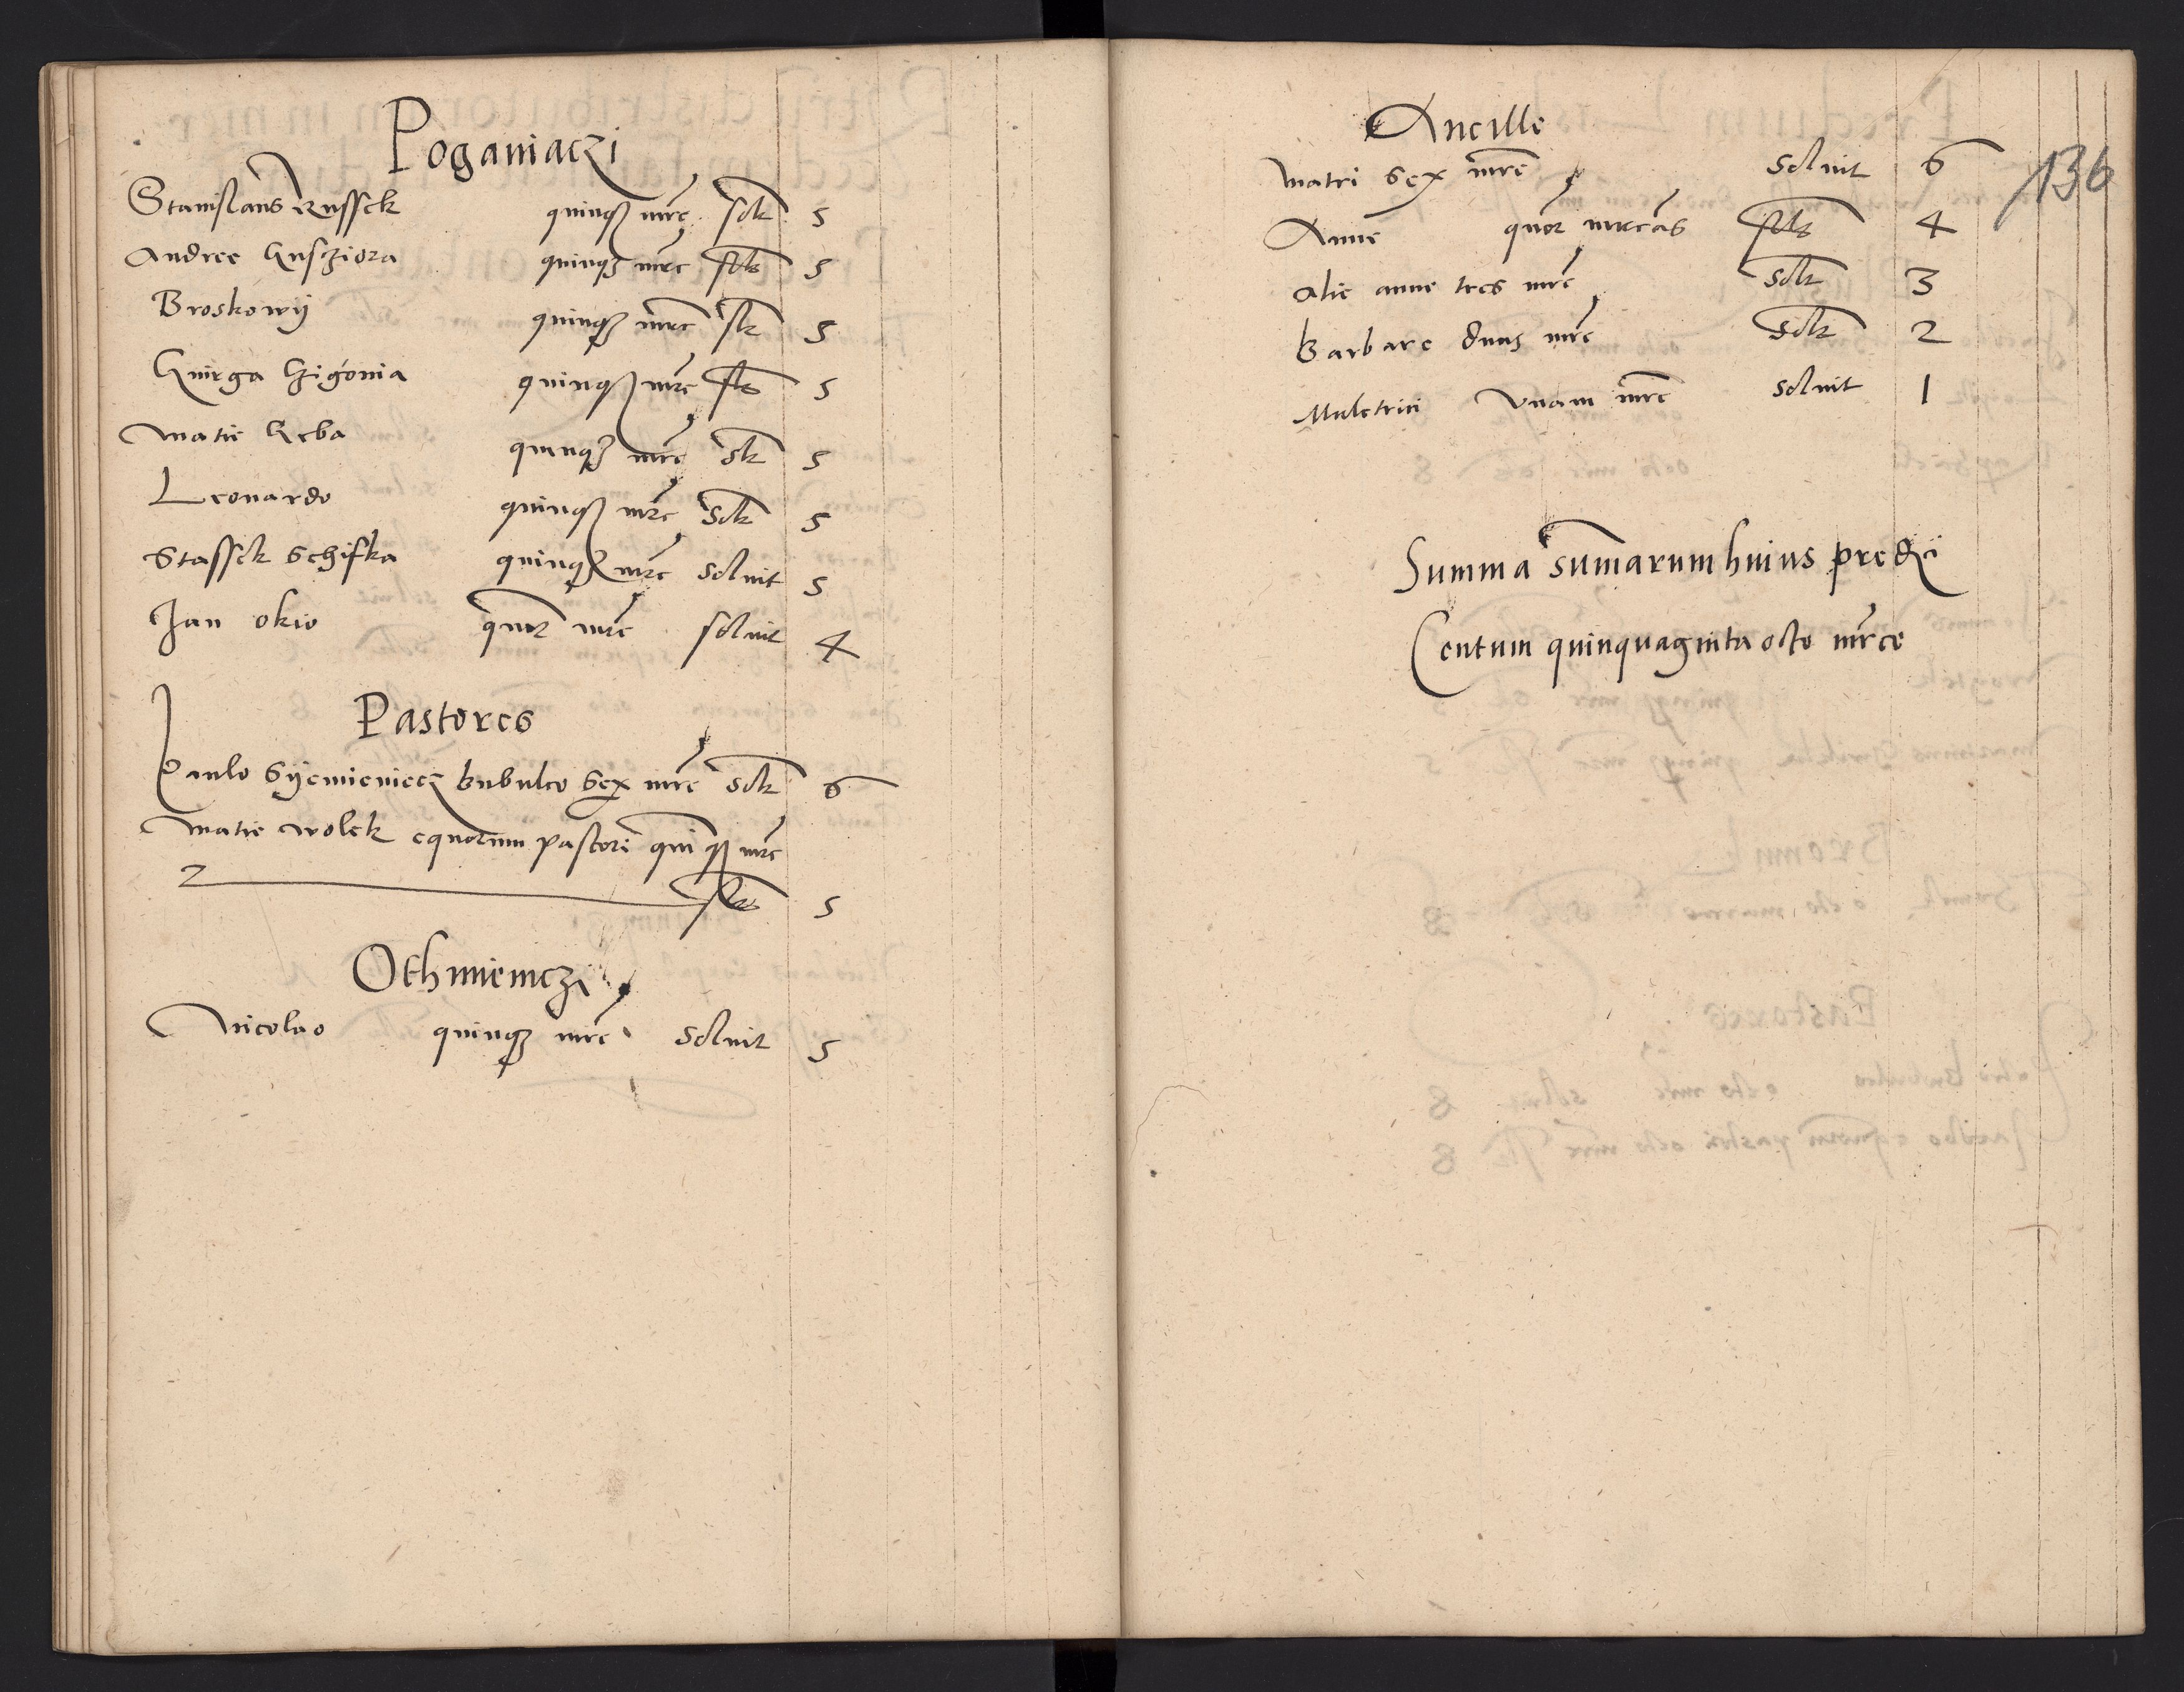 Poganiaczi
Stanislaus Russek quinq3 mrc solt 5
Andree Kusziora quinq3 mrc solt 5
Broskowÿ quinq3 mrc solt 5
quinq3 mrc solt 5
Matie Keba quinq3 mrc solt 5
Leonardo quinq3 mrc solt 5
Stassek Schifka quinq3 mrc soluit 5
Jan okio quor mrc soluit 4
Pastores
Paulo Syemieniecz bubulco sex mrc solt 6
Matie wolek equorum pastori quinq3 mrc
2 solt 5
Othmieniczi
Nicolao quinq3 mrc soluit 5
Ancille
136
Matri sex mrc soluit 6
Anne quor mrcas solt 4
Alie anne tres mrc solt 3
Barbare duas mrc solt 2
Mulctrici vnam mrc soluit 1
Summa sumarum huius predii
Centum quinquaginta octo mrce